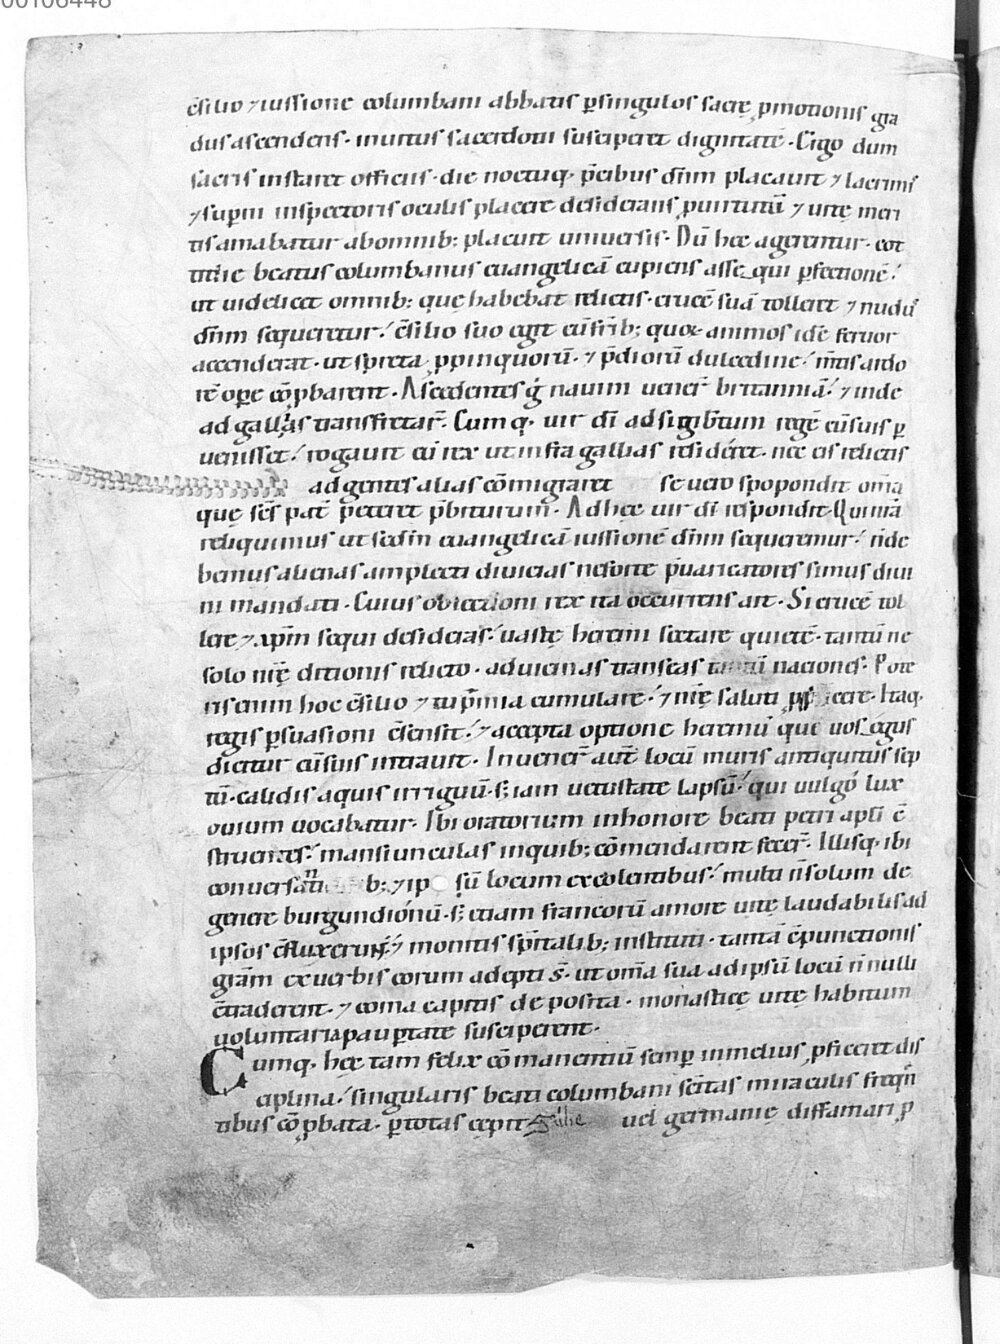 00106448
c̄silio ⁊ iussione columbani abbatis ꝑ singulos sacrę ꝓmotionis gra
dus ascendens · inuitus sacerdotii susciperet dignitatē · Ergo dum
sacris instaret officiis · die noctuq· p̄cibus dn̄m placauit ⁊ lacrimis
⁊ superni inspectoris oculis placere desiderans puritatis ⁊ uitę meri
tis amabatur ab omnib: placuit uniuersis · Dū hec agerentur · cot
tidie beatus columbanus euangelicā cupiens assequi ꝑfectionē
ut uidelicet omnib: quę habebat relictis · crucē suā tolleret ⁊ nudū
dn̄m sequeretur · c̄silio suo egit cū fr̄ib; quoꝝ animos idē feruor
accenderat · ut spreta ꝓpinquorū · ⁊ p̄diorū dulcedine · m̄tis ardo
rē opere cōꝓbarent · Ascedentes g̊ nauim uener̄ britanniā ⁊ inde
ad gallias transfretar̄ · Cumq· uir dī ad sigib̄tum regē cū suis ꝑ
uenisset · rogauit eū rex ut infra gallias resideret · nec eis relictis
ad gentes alias cōmigraret se uero spopondit om̄a
quę sēs pat̄ peteret p̄biturum · Ad hec uir dī respondit · Qui n̄ra
reliquimus ut sc̄dm euangelicā iussionē dn̄m sequeremur · n̄ de
bemus alienas amplecti diuicias ne forte p̄uaricatores simus diui
ni mandati · Cuius obiectioni rex ita occurrens ait · Si crucē tol
lere ⁊ xp̄m sequi desideras · uastę heremi sectare quietē · tantū ne
solo n̄rę ditionis relicto · ad uicinas transeas naciones · Pote
ris enim hoc c̄silio ⁊ tu p̄mia cumulare ⁊ n̄rę saluti ꝓspicere · Itaq·
regis ꝑsuasioni c̄sensit · ⁊ accepta optione heremū qui uosegus
dicitur cū suis intrauit · Inuener̄ aut̄ locū muris antiquitus sep
tū · calidis aquis irriguū · s; iam uetustate lapsū · qui uulgo lux
ouium uocabatur · Ibi oratorium in honore beati petri apl̄i c̄
struentes · mansiunculas in quib; cōmendarent fecer̄ · Illisq· ibi
conuersantib; ⁊ ipsū locum excolentibus · multi n̄ solum de
genere burgundionū · s; etiam francorū amore uitę laudabilis ad
ipsos c̄fluxerunt ⁊ monitis sp̄italib; instituti · tantā c̄punctionis
grām ex uerbis eorum adepti s̄ · ut om̄a sua ad ipsū locū n̄nulli
c̄traderent · ⁊ coma capitis deposita · monasticę uitę habitum
uoluntaria paupertate susciperent ·
Cumq· hec tam felix cōmanentiū semꝑ in melius ꝓficeret dis
ciplina · singularis beati columbani sc̄itas miraculis freqn̄
tibus cōꝓbata · ꝑ totas cepit Gallie uel germanię diffamari ꝓ